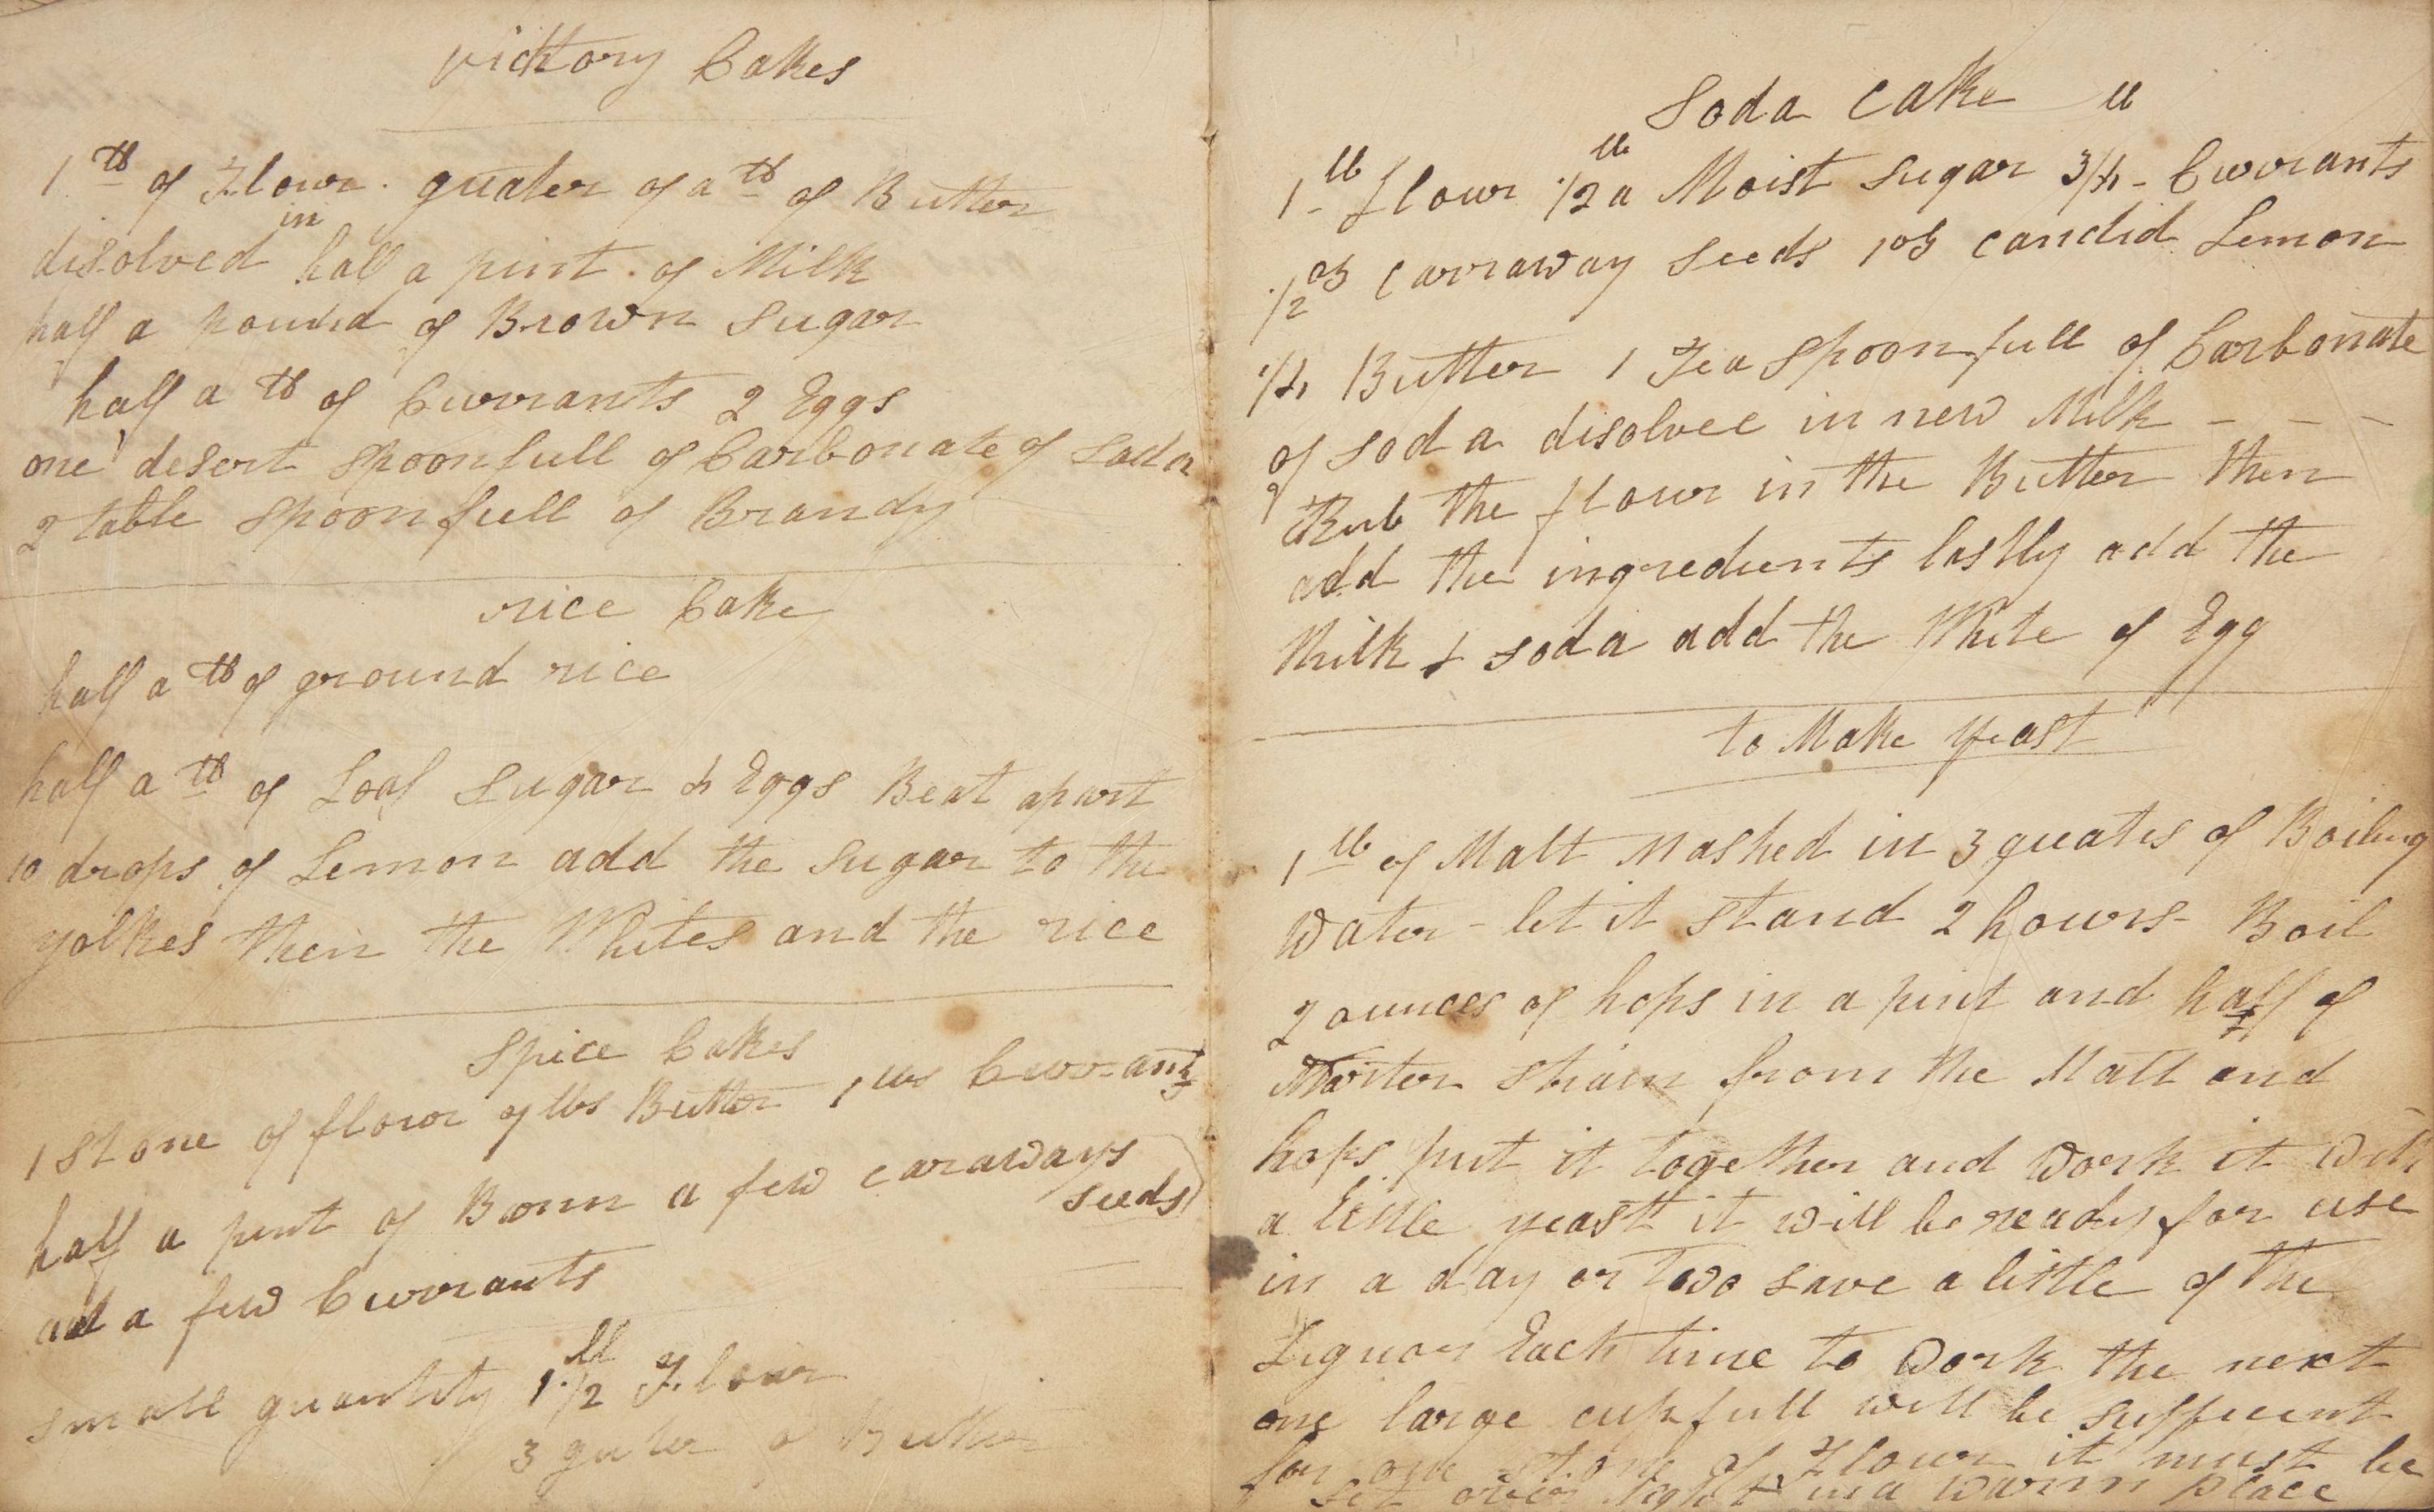 victory Cakes
1 lb of Flour. quater of a lb of Butter
disolved in half a pint of Milk
half a pound of Brown Sugar
half a lb of Currants 2 Eggs
one desert spoonfull of Carbonate of Soda
2 table spoonfull of Brandy
rice Cake
half a lb of ground rice
half a lb of Loaf Sugar 4 Eggs Beat apart
10 drops of Lemon add the Sugar to the
yolkes then the Whites and the rice
Spice Cakes
1 Stone of flour lbs Butter 1 lb Currants
half a pint of Barm a few caraways
seeds
a few Currants
small quantity 1 1/2 lb Flour
3 quter of Butter
Soda Cake
1 lb flour 1/2 a lb Moist Sugar 3/4 lb Currants
1/2 oz Carraway Seeds 1 oz Candid Lemon
1/4 Butter 1 Tea Spoonfull of Carbonate
of Soda disolvee in new Milk - - -
Rub the flour in the Butter then
add the ingredients lastly add the
Milk & Soda add the White of Egg
to Make Yeast
1 lb of Malt Mashed in 3 quates of Boiling
Water - let it stand 2 hours - Boil
2 ounces of hops in a pint and half of
Water strain from the Malt and
hops put it together and Work it With
a little yeast it will be ready for use
in a day or two save a little of the
Liquor Each time to Work the next
one large cupfull will be sufficent
for one stone of Flour it must be
set over Night in a warm place